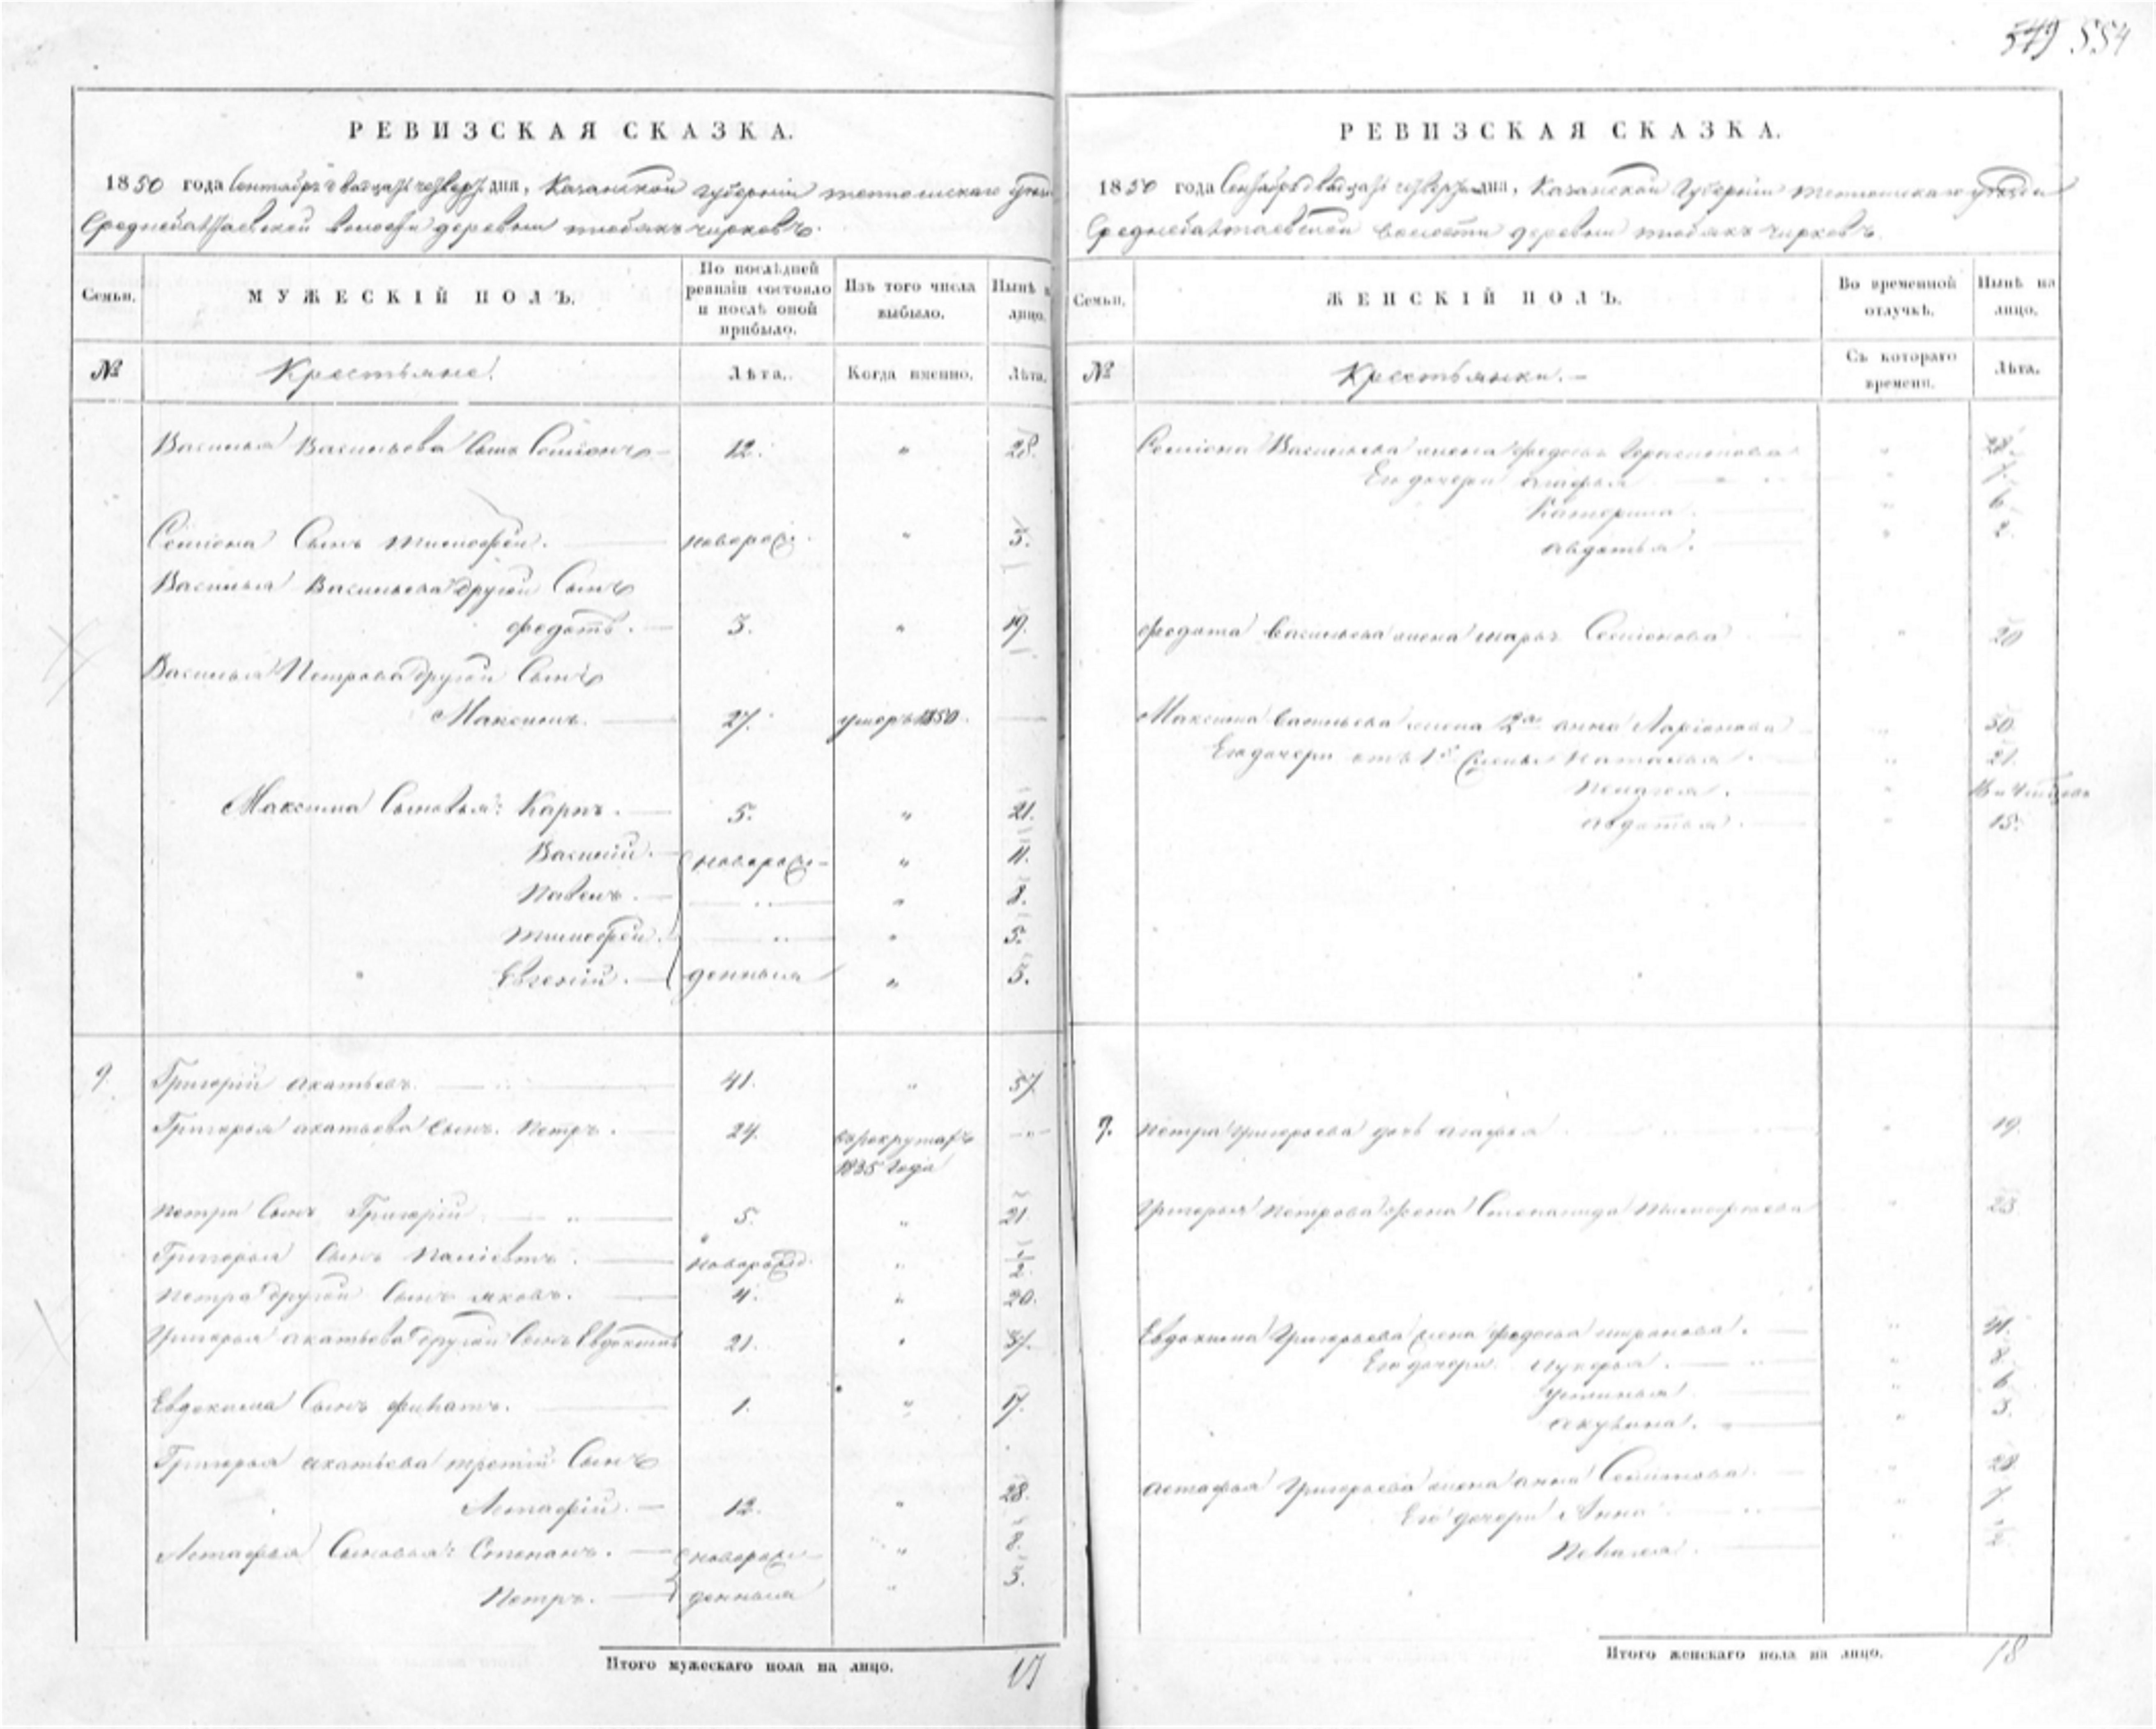 549 554
РЕВИЗСКАЯ СКАЗКА.
1850 года Сентября двадцать четверт дня, Казанской губернии тетюшскаго уезда
волости деревни
Семьи.
МУЖЕСКІЙ ПОЛЪ.
По послѣдней ревизіи состояло и послѣ оной прибыло.
Изъ того числа выбыло.
Нынѣ на лицо.
№
Крестьяне.
Лѣта.
Когда именно.
Лѣта.
Василья Васильева сынъ Семіонъ 12. " 28.
Семіона Сынъ Тимофей. новорож " 3.
Василья Васильева другой Сынъ
федотъ. 3. " 19.
Василья Петрова другой Сынъ
Максимъ. 27. умеръ 1850
Максима Сыновья: Карпъ. 5. " 21.
Василій. новорож " 11.
Павелъ. " " 8.
Тимофей. " " 5.
Евгений. денныя " 3.
9. Григорій акатьевъ. 41. " 57.
Григорья акатьева сынъ Петръ. 24. в рекрутахъ
1835 года
Петра Сынъ Григорій 5. " 21
Григорья Сынъ новорожд. " 1/2
Петра другой Сынъ яковъ. 4. " 20.
Григорья акатьева другой Сынъ Евдокимъ 21. " 37.
Евдокима Сынъ 1. " 17.
Григорья акатьева третій Сынъ
Астафій. 12. " 28.
Астафья Сыновья: Степанъ. новорож " 8.
Петръ. денныя " 3.
Итого мужескаго пола на лицо. 17
РЕВИЗСКАЯ СКАЗКА.
1850 года Сентября двадцать четверт дня, Казанской Губерніи тетюшскаго уезда
волости деревни
Семьи.
ЖЕНСКІЙ ПОЛЪ.
Во временной отлучкѣ.
Нынѣ на лицо.
№
Крестьянки.
Съ котораго времени.
Лѣта.
Семіона Васильева жена федосья Герасимова " 28.
Его дочери агафья " 7.
Катерина. " 6.
авдотья. " 2.
федота Васильева жена марья Семіонова " 20
Максима Васильева жена 2я анна Ларіонова " 50.
Его дочери отъ 1й жены Наталья. " 21.
Пелагея. "
авдотья. " 15.
9. Петра григорьева дочь агафья " 19.
Григорья Петрова жена Степанида Тимофеева " 23.
Евдокима Григорьева жена федосья миронова. "
Его дочери лукерья. " 8
устинья " 6
акулина. " 3.
астафья Григорьева жена анна Семионова " 28
Его дочери Анна " 7.
Пелагея. " 1/2
Итого женскаго пола на лицо. 18